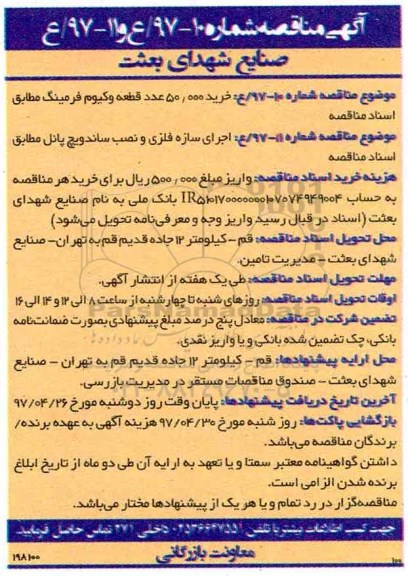 آگهی مناقصه شماره ۱۰-۹۷/ع و ۱۱-۹۷/ع
صنایع شهدای بعثت
موضوع مناقصه شماره ۱۰-۹۷/ع: خرید ۵۰٫۰۰۰ عدد قطعه وکیوم فرمینگ مطابق
اسناد مناقصه
موضوع مناقصه شماره ۱۱-۹۷/ع: اجرای سازه فلزی و نصب ساندویچ پانل مطابق
اسناد مناقصه
هزینه خرید اسناد مناقصه: واریز مبلغ ۵۰۰٫۰۰۰ ریال برای خرید هر مناقصه
به حساب بانک ملی به نام صنایع شهدای
بعثت (اسناد در قبال رسید واریز وجه و معرفی‌نامه تحویل می‌شود)
محل تحویل اسناد مناقصه: قم - کیلومتر ۱۲ جاده قدیم قم به تهران- صنایع
شهدای بعثت - مدیریت تامین.
مهلت تحویل اسناد مناقصه: طی یک هفته از انتشار آگهی.
اوقات تحویل اسناد مناقصه: روزهای شنبه تا چهارشنبه از ساعت ۸ الی ۱۲ و ۱۴ الی ۱۶
تضمین شرکت در مناقصه: معادل پنج درصد مبلغ پیشنهادی بصورت ضمانت‌نامه
بانکی، چک تضمین شده بانکی و یا واریز نقدی.
محل ارایه پیشنهادها: قم - کیلومتر ۱۲ جاده قدیم قم به تهران - صنایع
شهدای بعثت - صندوق مناقصات مستقر در مدیریت بازرسی.
آخرین تاریخ دریافت پیشنهادها: پایان وقت روز دوشنبه مورخ ۹۷/۰۴/۲۶
بازگشایی پاکت‌ها: روز شنبه مورخ ۹۷/۰۴/۳۰ هزینه آگهی به عهده برنده/
برندگان مناقصه می‌باشد.
داشتن گواهینامه معتبر سمتا و یا تعهد به ارایه آن طی دو ماه از تاریخ ابلاغ
برنده شدن الزامی است.
مناقصه‌گزار در رد تمام و یا هر یک از پیشنهادها مختار می‌باشد.
جهت کسب اطلاعات بیشتر با تلفن ۰۲۵۳۶۶۴۷۵۵۱ داخلی ۲۷۱ تماس حاصل فرمایید.
معاونت بازرگانی
۱۹۸۱۰۰